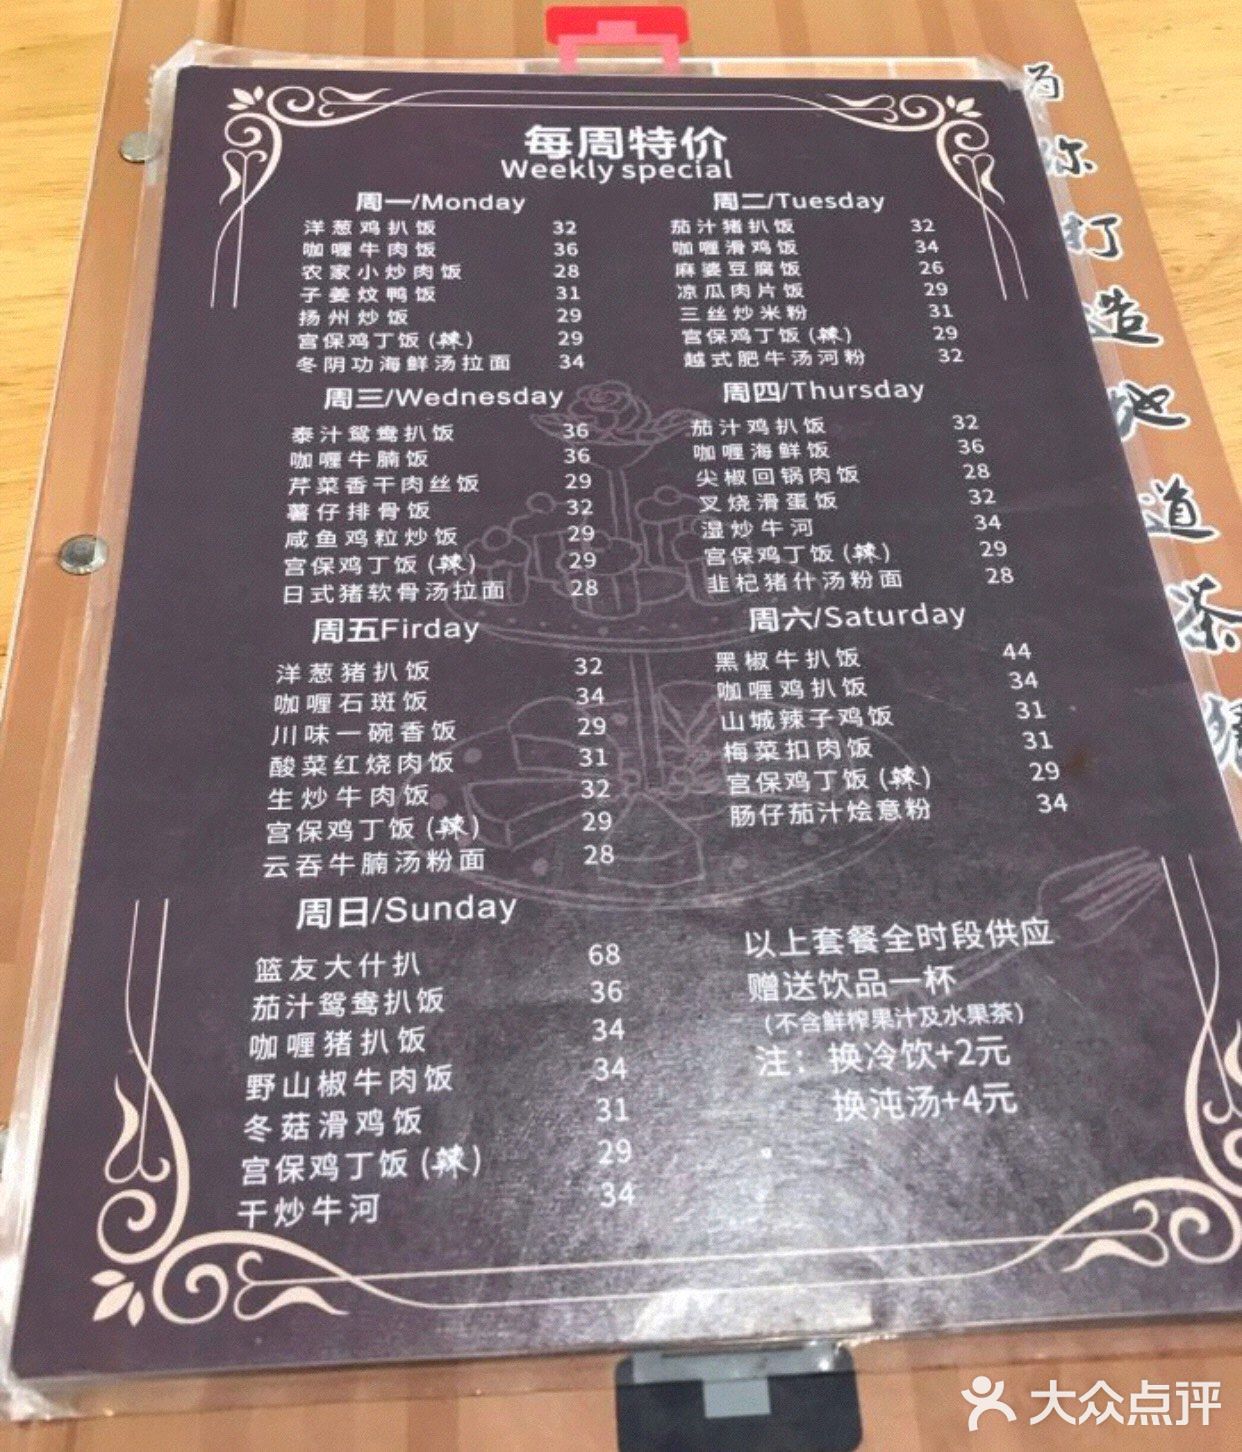 每周特价
Weekly special
周一/Monday
洋葱鸡扒饭 32
咖喱牛肉饭 36
农家小炒肉饭 28
子姜炆鸭饭 31
扬州炒饭 29
宫保鸡丁饭(辣) 29
冬阴功海鲜汤拉面 34
周二/Tuesday
茄汁猪扒饭 32
咖喱滑鸡饭 34
麻婆豆腐饭 26
凉瓜肉片饭 29
三丝炒米粉 31
宫保鸡丁饭(辣) 29
越式肥牛汤河粉 32
周三/Wednesday
泰汁鸳鸯扒饭 36
咖喱牛腩饭 36
芹菜香干肉丝饭 29
薯仔排骨饭 32
咸鱼鸡粒炒饭 29
宫保鸡丁饭(辣) 29
日式猪软骨汤拉面 28
周四/Thursday
茄汁鸡扒饭 32
咖喱海鲜饭 36
尖椒回锅肉饭 28
叉烧滑蛋饭 32
湿炒牛河 34
宫保鸡丁饭(辣) 29
韭杞猪什汤粉面 28
周五Firday
洋葱猪扒饭 32
咖喱石斑饭 34
川味一碗香饭 29
酸菜红烧肉饭 31
生炒牛肉饭 32
宫保鸡丁饭(辣) 29
云吞牛腩汤粉面 28
周六/Saturday
黑椒牛扒饭 44
咖喱鸡扒饭 34
山城辣子鸡饭 31
梅菜扣肉饭 31
宫保鸡丁饭(辣) 29
肠仔茄汁烩意粉 34
周日/Sunday
篮友大什扒 68
茄汁鸳鸯扒饭 36
咖喱猪扒饭 34
野山椒牛肉饭 34
冬菇滑鸡饭 31
宫保鸡丁饭(辣) 29
干炒牛河 34
以上套餐全时段供应
赠送饮品一杯
(不含鲜榨果汁及水果茶)
注：换冷饮+2元
换沌汤+4元
为你打造地道茶
大众点评